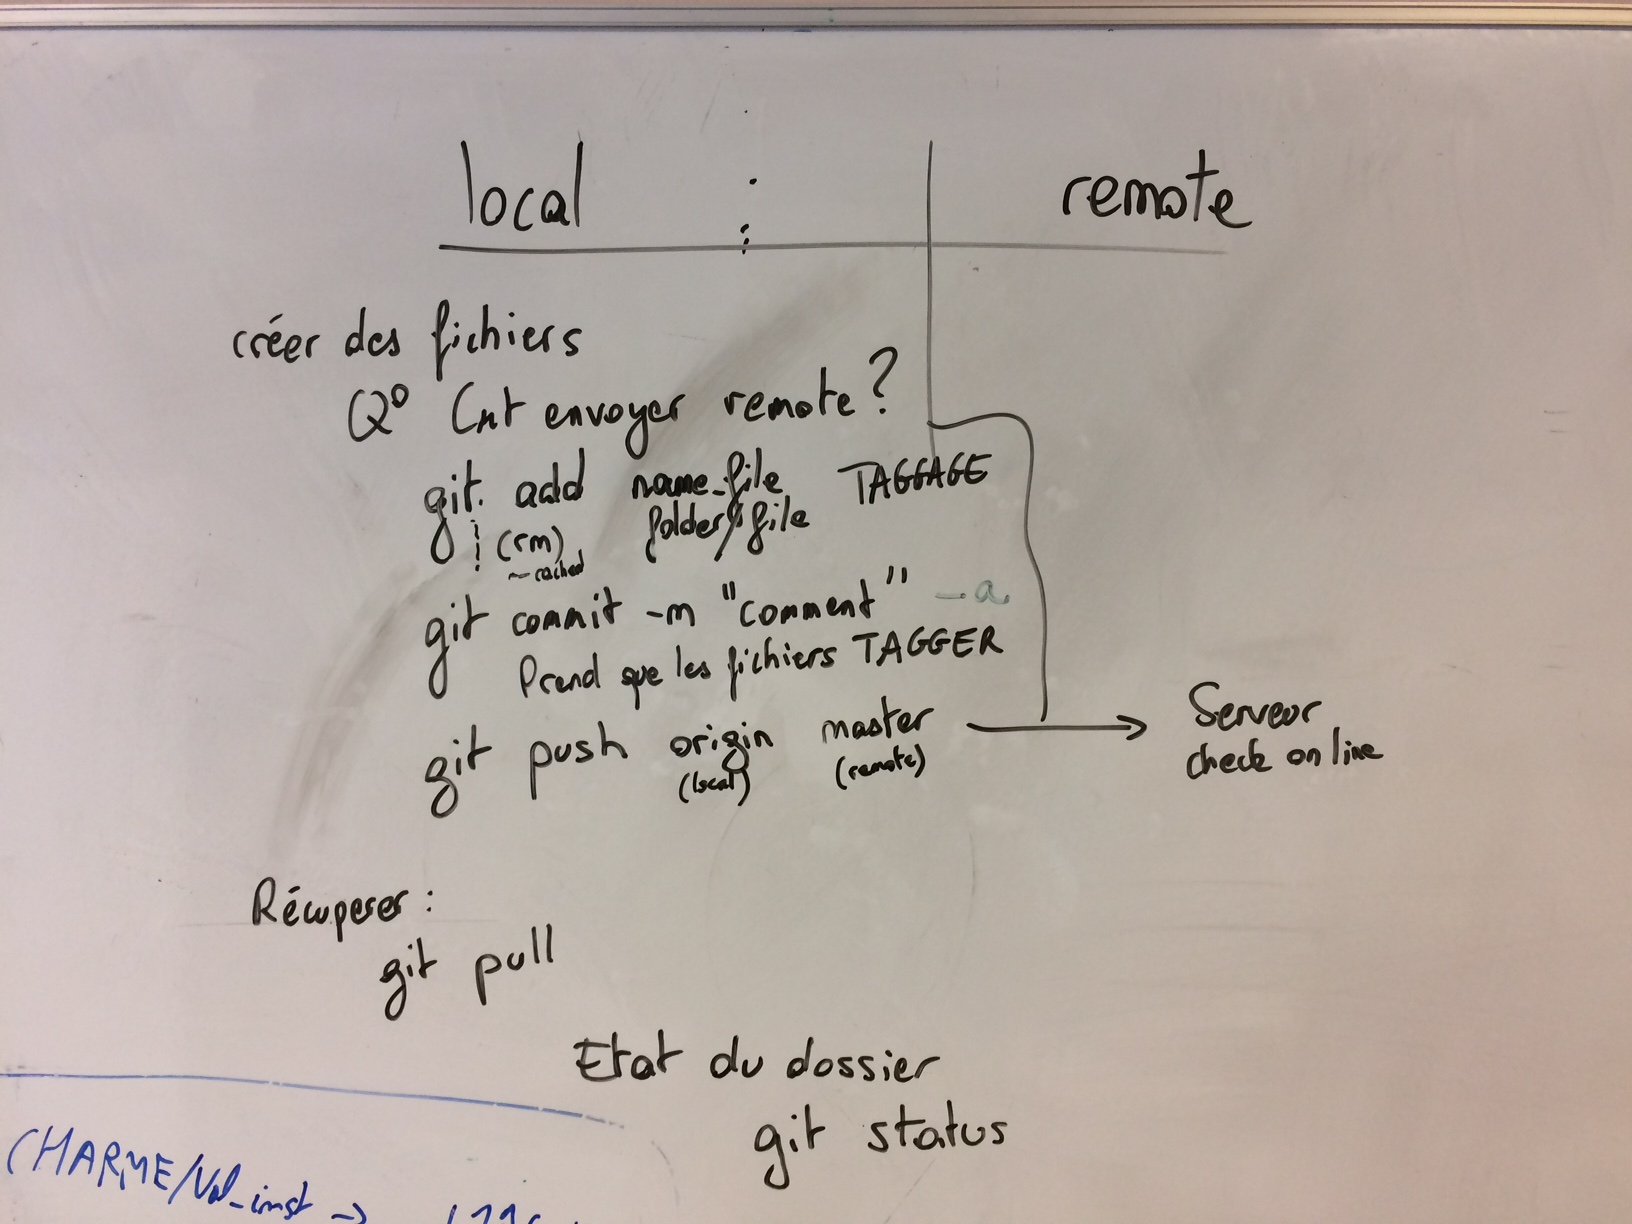 local remote
créer des fichiers
Q° Cmt envoyer remote?
git add name_file TAGGAGE
(rm) folder/file
--cached
git commit -m "comment" -a
Prend que les fichiers TAGGER
git push origin master → Serveur
(local) (remote) check on line
Récuperer :
git pull
Etat du dossier
git status
CHARME/Val_inst →